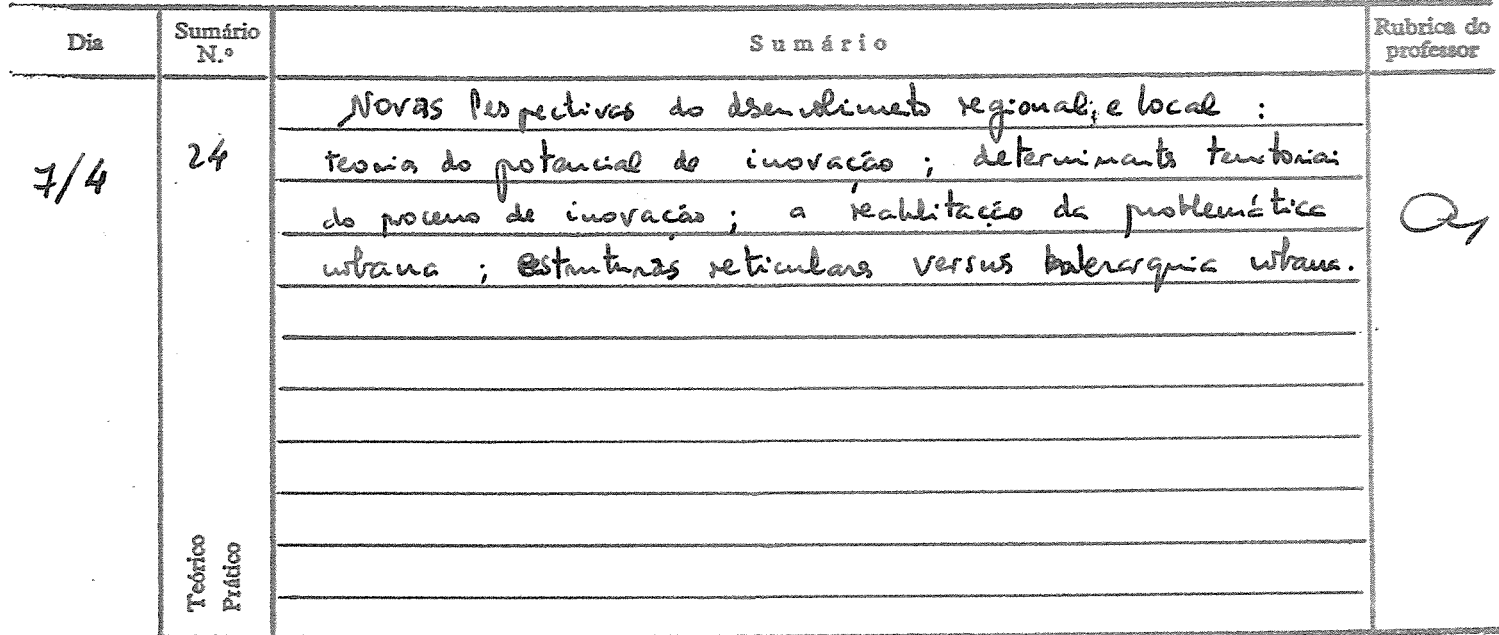 Dia
Sumário N.º
Sumário
Rubrica do professor
7/4
24
Novas Pespectivas do desenvolvimento regional, e local :
teoria do potencial de inovação ; determinants territoriais
do processo de inovação ; a reabilitação da problemática
urbana ; estruturas reticulares versus hierarquia urbana.
Teórico
Prático